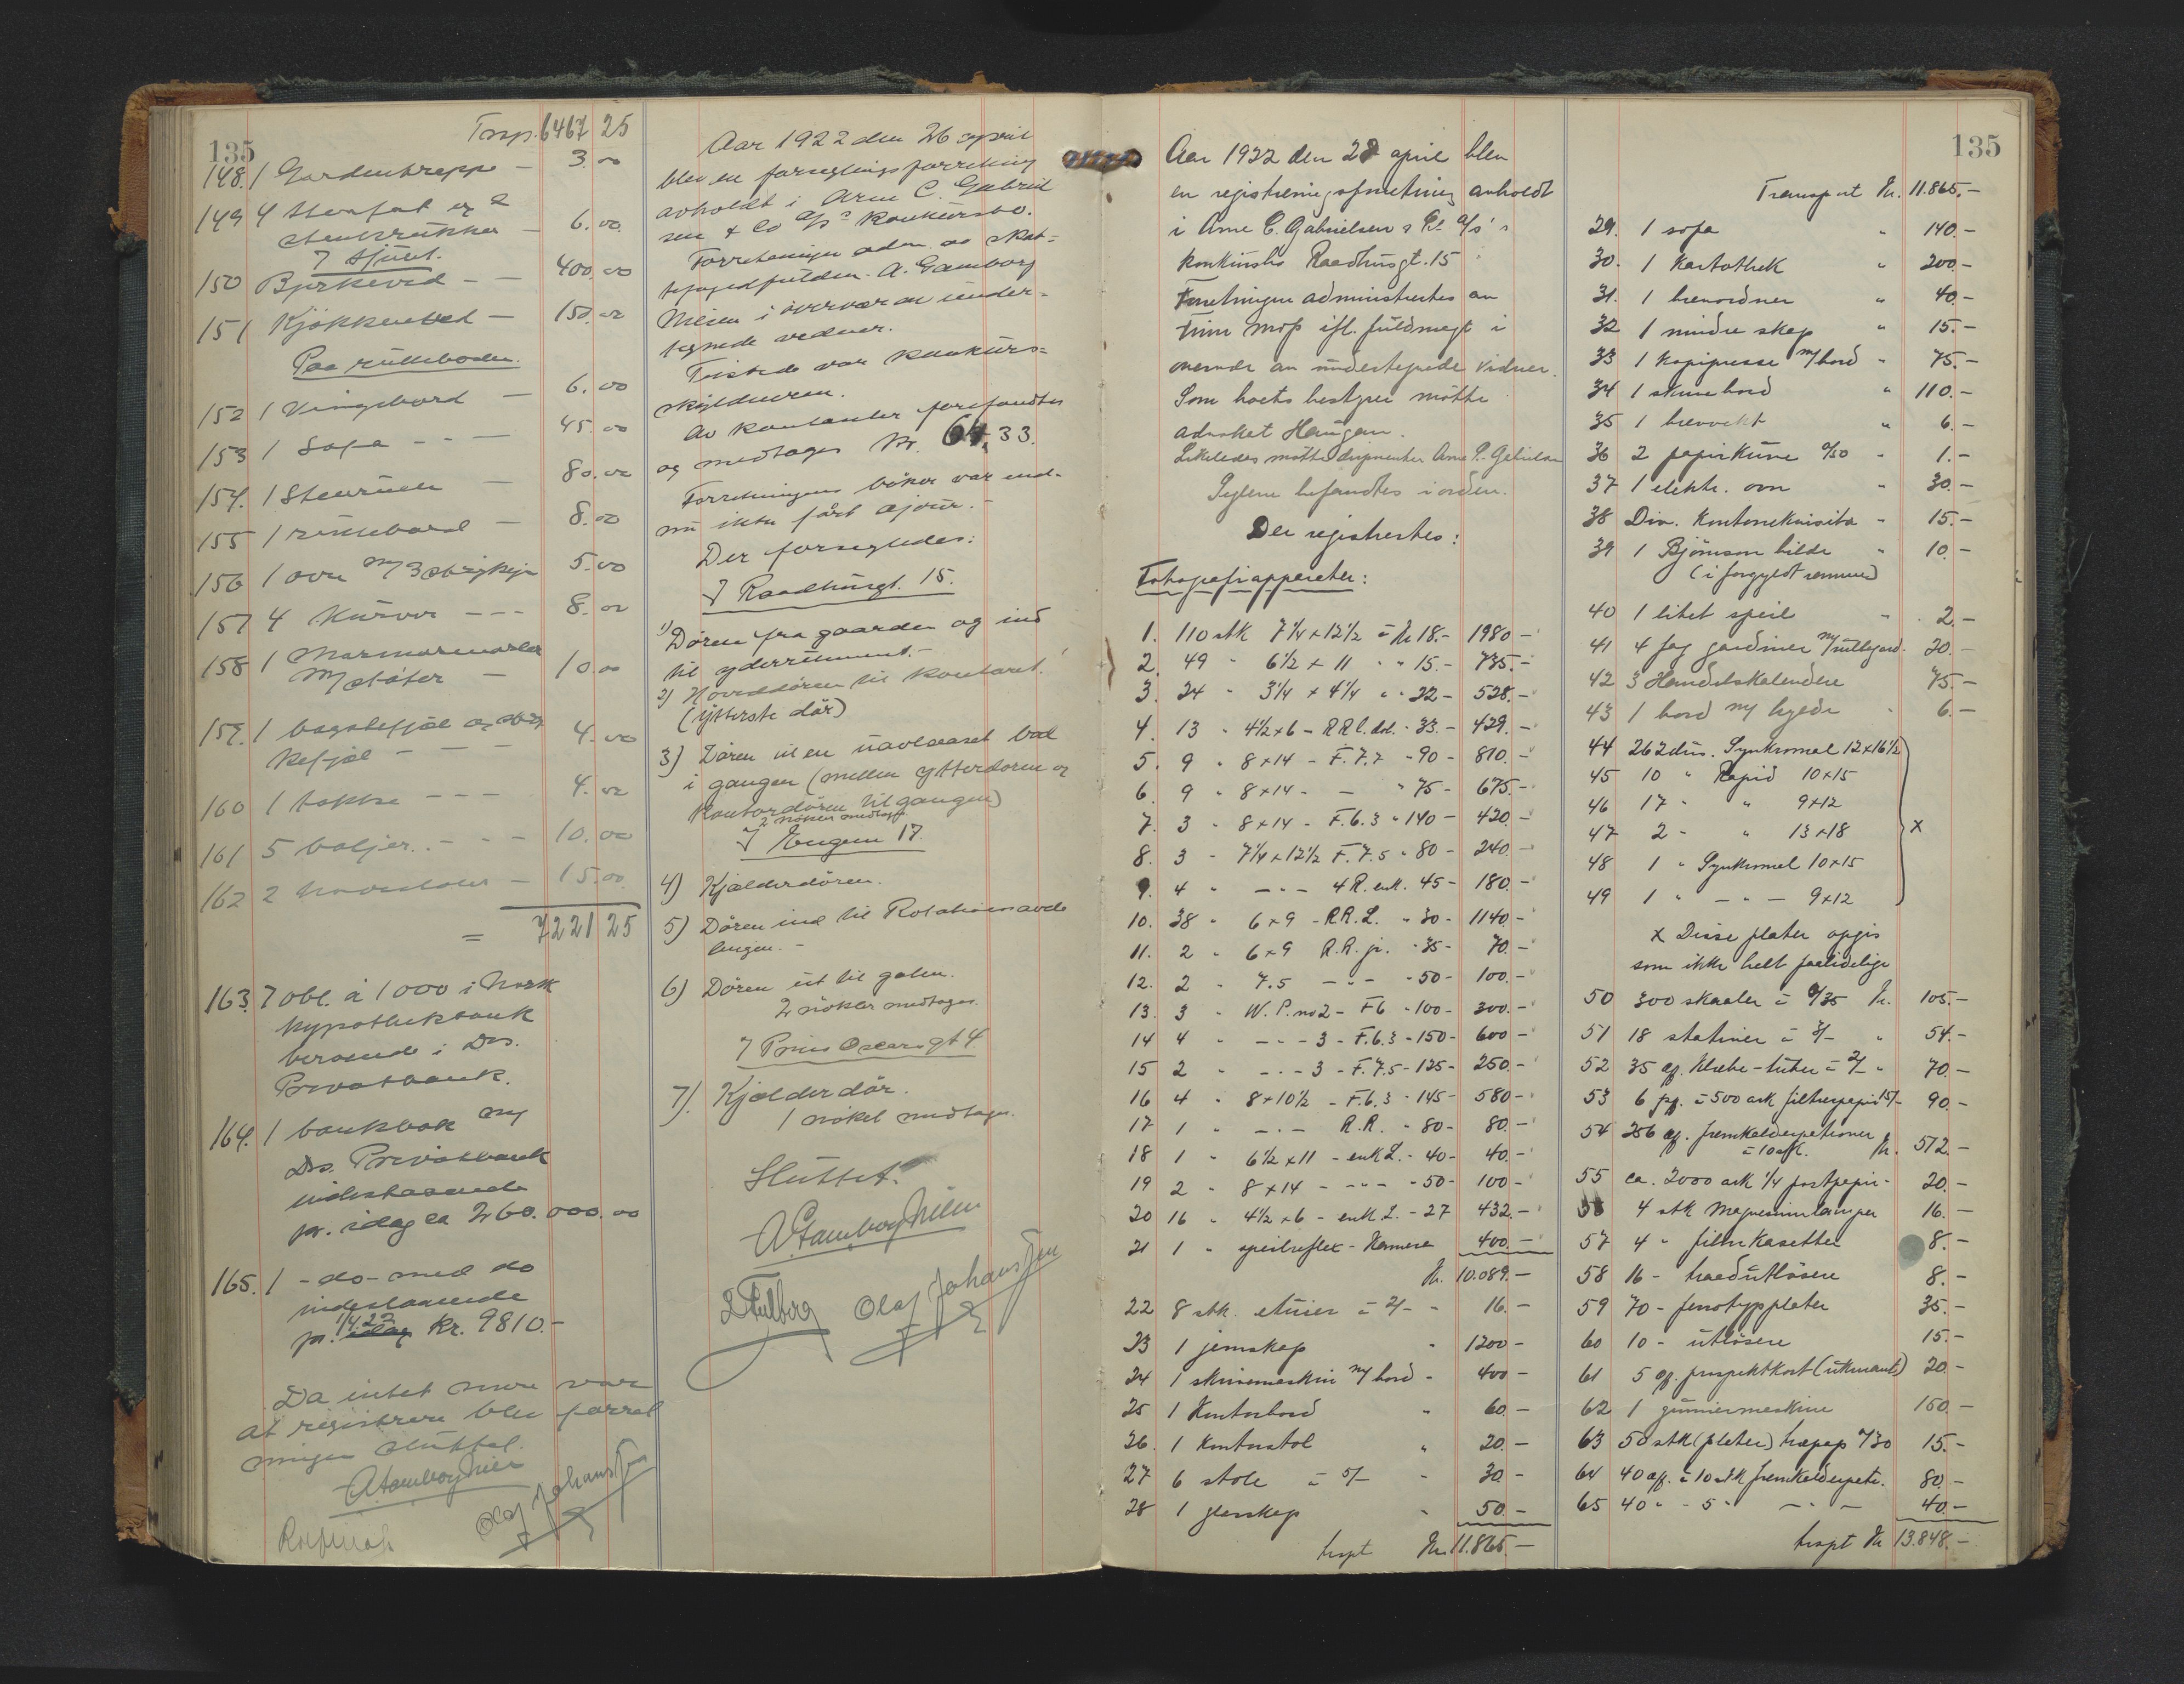 135
Trsp. 6467 25
148. 1 Gardentrappe – 3.00
149 4 stenfat og 2
stenkrukker – 6.00
I skjulet.
150 Bjerkeved – 400.00
151 Kjøkkenved – 150.00
Paa rulleboden.
152 1 Vingebord – 6.00
153 1 Sofa – – 45.00
154. 1 Stenrulle – 80.00
155 1 rullebord – 8.00
156 1 ovn m/ 3 strykejern 5.00
157 4 Kurver – – – 8.00
158 1 Marmormorter
m/ støter – 10.00
159. 1 bagstefjøl og
kefjøl – – – 4.00
160 1 takke – – – 4.00
161 5 baljer. – – – 10.00
162 2 – 15.00
= 7221 25
163. 7 obl. à 1000 i Norsk
Hypothekbank
beroende i Drs.
Privatbank.
164. 1 bankbok m/
Drs. Privatbank
indestaaende
pr. idag ca 260.000.00
165. 1 – do – med do
indestaaende
pr. 1/4.22 idag kr. 9810.–
Da intet mere var
at registrere blev forret
ningen sluttet.
A Gamborg Nilsen
Olaf Johansen
Aar 1922 den 26 april
blev en forseglingsforretning
avholdt i Arne C. Gabriel
sen & Co A/S's konkursbo.
Forretningen adm. av skat-
tefogedfuldm. A. Gamborg
Nilsen i overvær av under-
tegnede vidner.
Tilstede var konkurs-
skyldneren.
Av kontanter forefandtes
og medtages kr. 64,33.
Forretningens bøker var end-
nu ikke ført ajour. –
Der forsegledes:
I Raadhusgt. 15.
1) Døren fra gaarden og ind
til yderrummet. –
2) Hoveddøren til kontoret.
(ytterste dør)
3) Døren til en uavlaaset bod
i gangen (mellem ytterdøren og
kontordøren til gangen)
2 nøkler medtages.
I Engene 17.
4) Kjælderdøren.
5) Døren ind til Rotationsavde
lingen. –
6) Døren ut til gaten.
2 nøkler medtages.
I Prins Oscarsgt 4
7). Kjælderdør.
1 nøkel medtages.
Sluttet.
A Gamborg Nilsen
Olaf Johansen
135
Aar 1922 den 28 april blev
en registreringsforretning avholdt
i Arne C. Gabrielsen & Co A/S's
konkursbo Raadhusgt. 15
Forretningen administrertes av
Trine Moss ifl. fuldmagt i
overvær av undertegnede vidner.
Som boets bestyrer møtte
advokat Haugen.
Likeledes møtte disponenten Arne C. Gabrielsen
Seglene befandtes i orden.
Der registrertes:
Fotografiapparater:
1. 110 stk 7¼ × 12½ à kr 18.– 1980 –
2. 49 " 6½ × 11 " " 15.– 735.–
3. 24 " 3¼ × 4¼ " " 22 – 528.–
4. 13 " 4½×6 – R R l. dob. " 33.– 429.–
5. 9 " 8×14 – F. 7.7 " 90 – 810.–
6. 9 " 8×14 – – " 75 – 675.–
7. 3 " 8×14 – F. 6.3 " 140 – 420.–
8. 3 – 7¼×12½ F. 7.5 " 80 – 240.–
9. 4 " – " – 4 R. enk. 45 – 180.–
10. 38 " 6×9 – R R. L. " 30 – 1140.–
11. 2 " 6×9 R. R. jr. " 35 – 70.–
12. 2 " 7.5 – " – " 50 – 100.–
13. 3 " W. P. no 2 – F 6 " 100 – 300.–
14 4 " – " – 3 – F. 6.3 " 150 – 600 –
15 2 " – " – 3 – F. 7.5 – 125 – 250.–
16 4 " 8×10½ – F. 6.3 " 145 – 580 –
17 1 " – " – R. R. " 80 – 80.–
18 1 " 6½×11 – enk L. – 40 – 40.–
19 2 " 8×14 – " – – 50 – 100 –
20 16 " 4½×6 – enk L. – 27 432.–
21 1 " speilreflex – Kamera 400.–
Kr. 10.089.–
22 8 stk. etuier à 2/– " 16.–
23 1 jernskap " 1200 –
24 1 skrivemaskin m/ bord – 400 –
25 1 Kontorbord " 60.–
26. 1 kontorstol " 20.–
27 6 stole à 5/– " 30.–
28 1 glasskap " 50.–
trspt Kr. 11.865.–
Transport Kr. 11.865.–
29. 1 sofa " 140.–
30. 1 Kartothek " 200 –
31. 1 brevordner " 40.–
32 1 mindre skap " 15.–
33 1 kopipresse m/ bord " 75.–
34 1 skrivebord " 110.–
35 1 brevvekt " 6.–
36 2 papirkurve 0/50 " 1.–
37 1 elektr. ovn " 30.–
38 Div. Kontorrekvisita – 15.–
39 1 Bjørnson bilde " 10.–
(i forgyldt ramme)
40 1 litet speil " 2.–
41 4 fag gardiner m/ rullegard. 20.–
42 3 Handelskalendere 75.–
43 1 bord m/ hylde " 6.–
44 262 dus. Synkromal 12×16½
45 10 " Rapid 10×15
46 17 – " 9×12
47 2 – " 13×18 x
48 1 " Synkromal 10×15
49 1 " – " – 9×12
x Disse plater opgis
som ikke helt paalidelige
50 300 skaaler à 0/35 kr. 105.–
51 18 stativer à 3/– " 54.–
52 35 es. Klebe-tuber à 2/– " 70.–
53 6 pf. à 500 ark filterpapir 15/– 90.–
54 256 es. fremkalderpatroner
à 10 stk. kr. 512.–
55 ca. 2000 ark ¼ postpapir – 20.–
56 4 stk Magnesiumlamper 16.–
57 4 " filmkasetter 8.–
58 16 – traadutløsere 8.–
59 70 – ferrotypplater 35.–
60 10 – utløsere 15.–
61 5 es. prospektkort (ukurante) 20 –
62 1 gummiermaskine 150.–
63 50 stk (plater) træpap 0/30 15.–
64 40 es. à 10 stk fremkalderpatr. 80.–
65 40 " – 5 " – " – 40.–
trspt kr 13.848.–